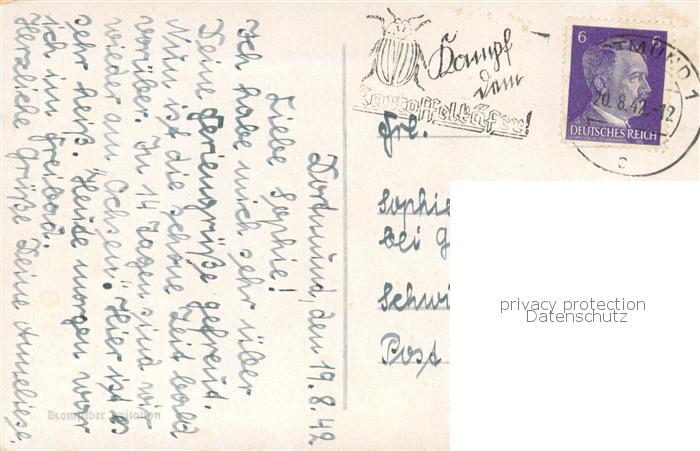 Dortmund, den 19.8.42
Liebe Sophie!
Ich habe mich sehr über
Deine Feriengrüße gefreut.
Nun ist die schöne Zeit bald
vorüber. In 14 Tagen sind wir
wieder am Ochsen". Hier ist es
sehr heiß. Heute morgen war
ich im Freibad.
Herzliche Grüße Deine Anneliese.
Kampf
dem
Kartoffelkäfer!
6 6
DEUTSCHES REICH
DORTMUND 1
20.8.42.-12
c
Frl.
Sophie
bei G
Schwi
Post
privacy protection
Datenschutz
Bromsilber Imitation